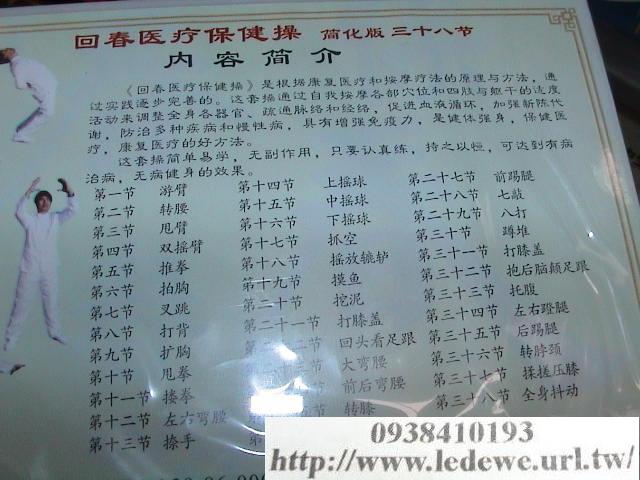 回春医疗保健操 简化版 三十八节
内容简介
《回春医疗保健操》是根据康复医疗和按摩疗法的原理与方法，通
过实践逐步完善的。这套操通过自我按摩各部穴位和四肢与躯干的适度
活动来调整全身各器官、疏通脉络和经络，促进血液循环，加强新陈代
谢，防治多种疾病和慢性病，具有增强免疫力，是健体强身，保健医
疗，康复医疗的好方法。
这套操简单易学，无副作用，只要认真练，持之以恒，可达到有病
治病，无病健身的效果。
第一节 游臂
第二节 转腰
第三节 甩臂
第四节 双摇臂
第五节 推拳
第六节 拍胸
第七节 叉跳
第八节 打背
第九节 扩胸
第十节 甩拳
第十一节 搂拳
第十二节 左右弯腰
第十三节 捺手
第十四节 上摇球
第十五节 中摇球
第十六节 下摇球
第十七节 抓空
第十八节 摇放辘轳
第十九节 摸鱼
第二十节 挖泥
第二十一节 打膝盖
回头看足跟
大弯腰
前后弯腰
转膝
第二十七节 前踢腿
第二十八节 七敲
第二十九节 八打
第三十节 蹲堆
第三十一节 打膝盖
第三十二节 抱后脑颠足跟
第三十三节 托腹
第三十四节 左右蹬腿
第三十五节 后踢腿
第三十六节 转脖颈
第三十七节 揉搓压膝
第三十八节 全身抖动
0938410193
http://www.ledewe.url.tw/